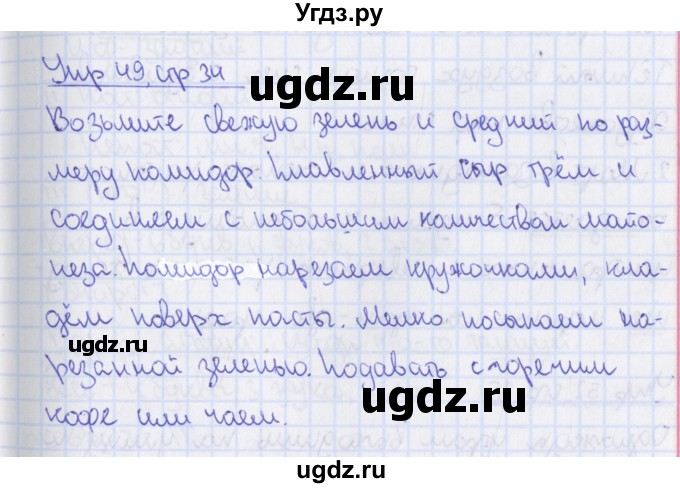 Угдз.ру
Упр 49, стр 34
ugdz.ru
Возьмите свежую зелень и средний по раз-
меру помидор. Плавленный сыр трём и
соединяем с небольшим количеством майо-
неза. Помидор нарезаем кружочками, кла-
дём поверх пасты. Мелко посыпаем на-
ugdz.ru
резанной зеленью. Подавать с горячим
ugdz.ru
кофе или чаем.
ugdz.ru